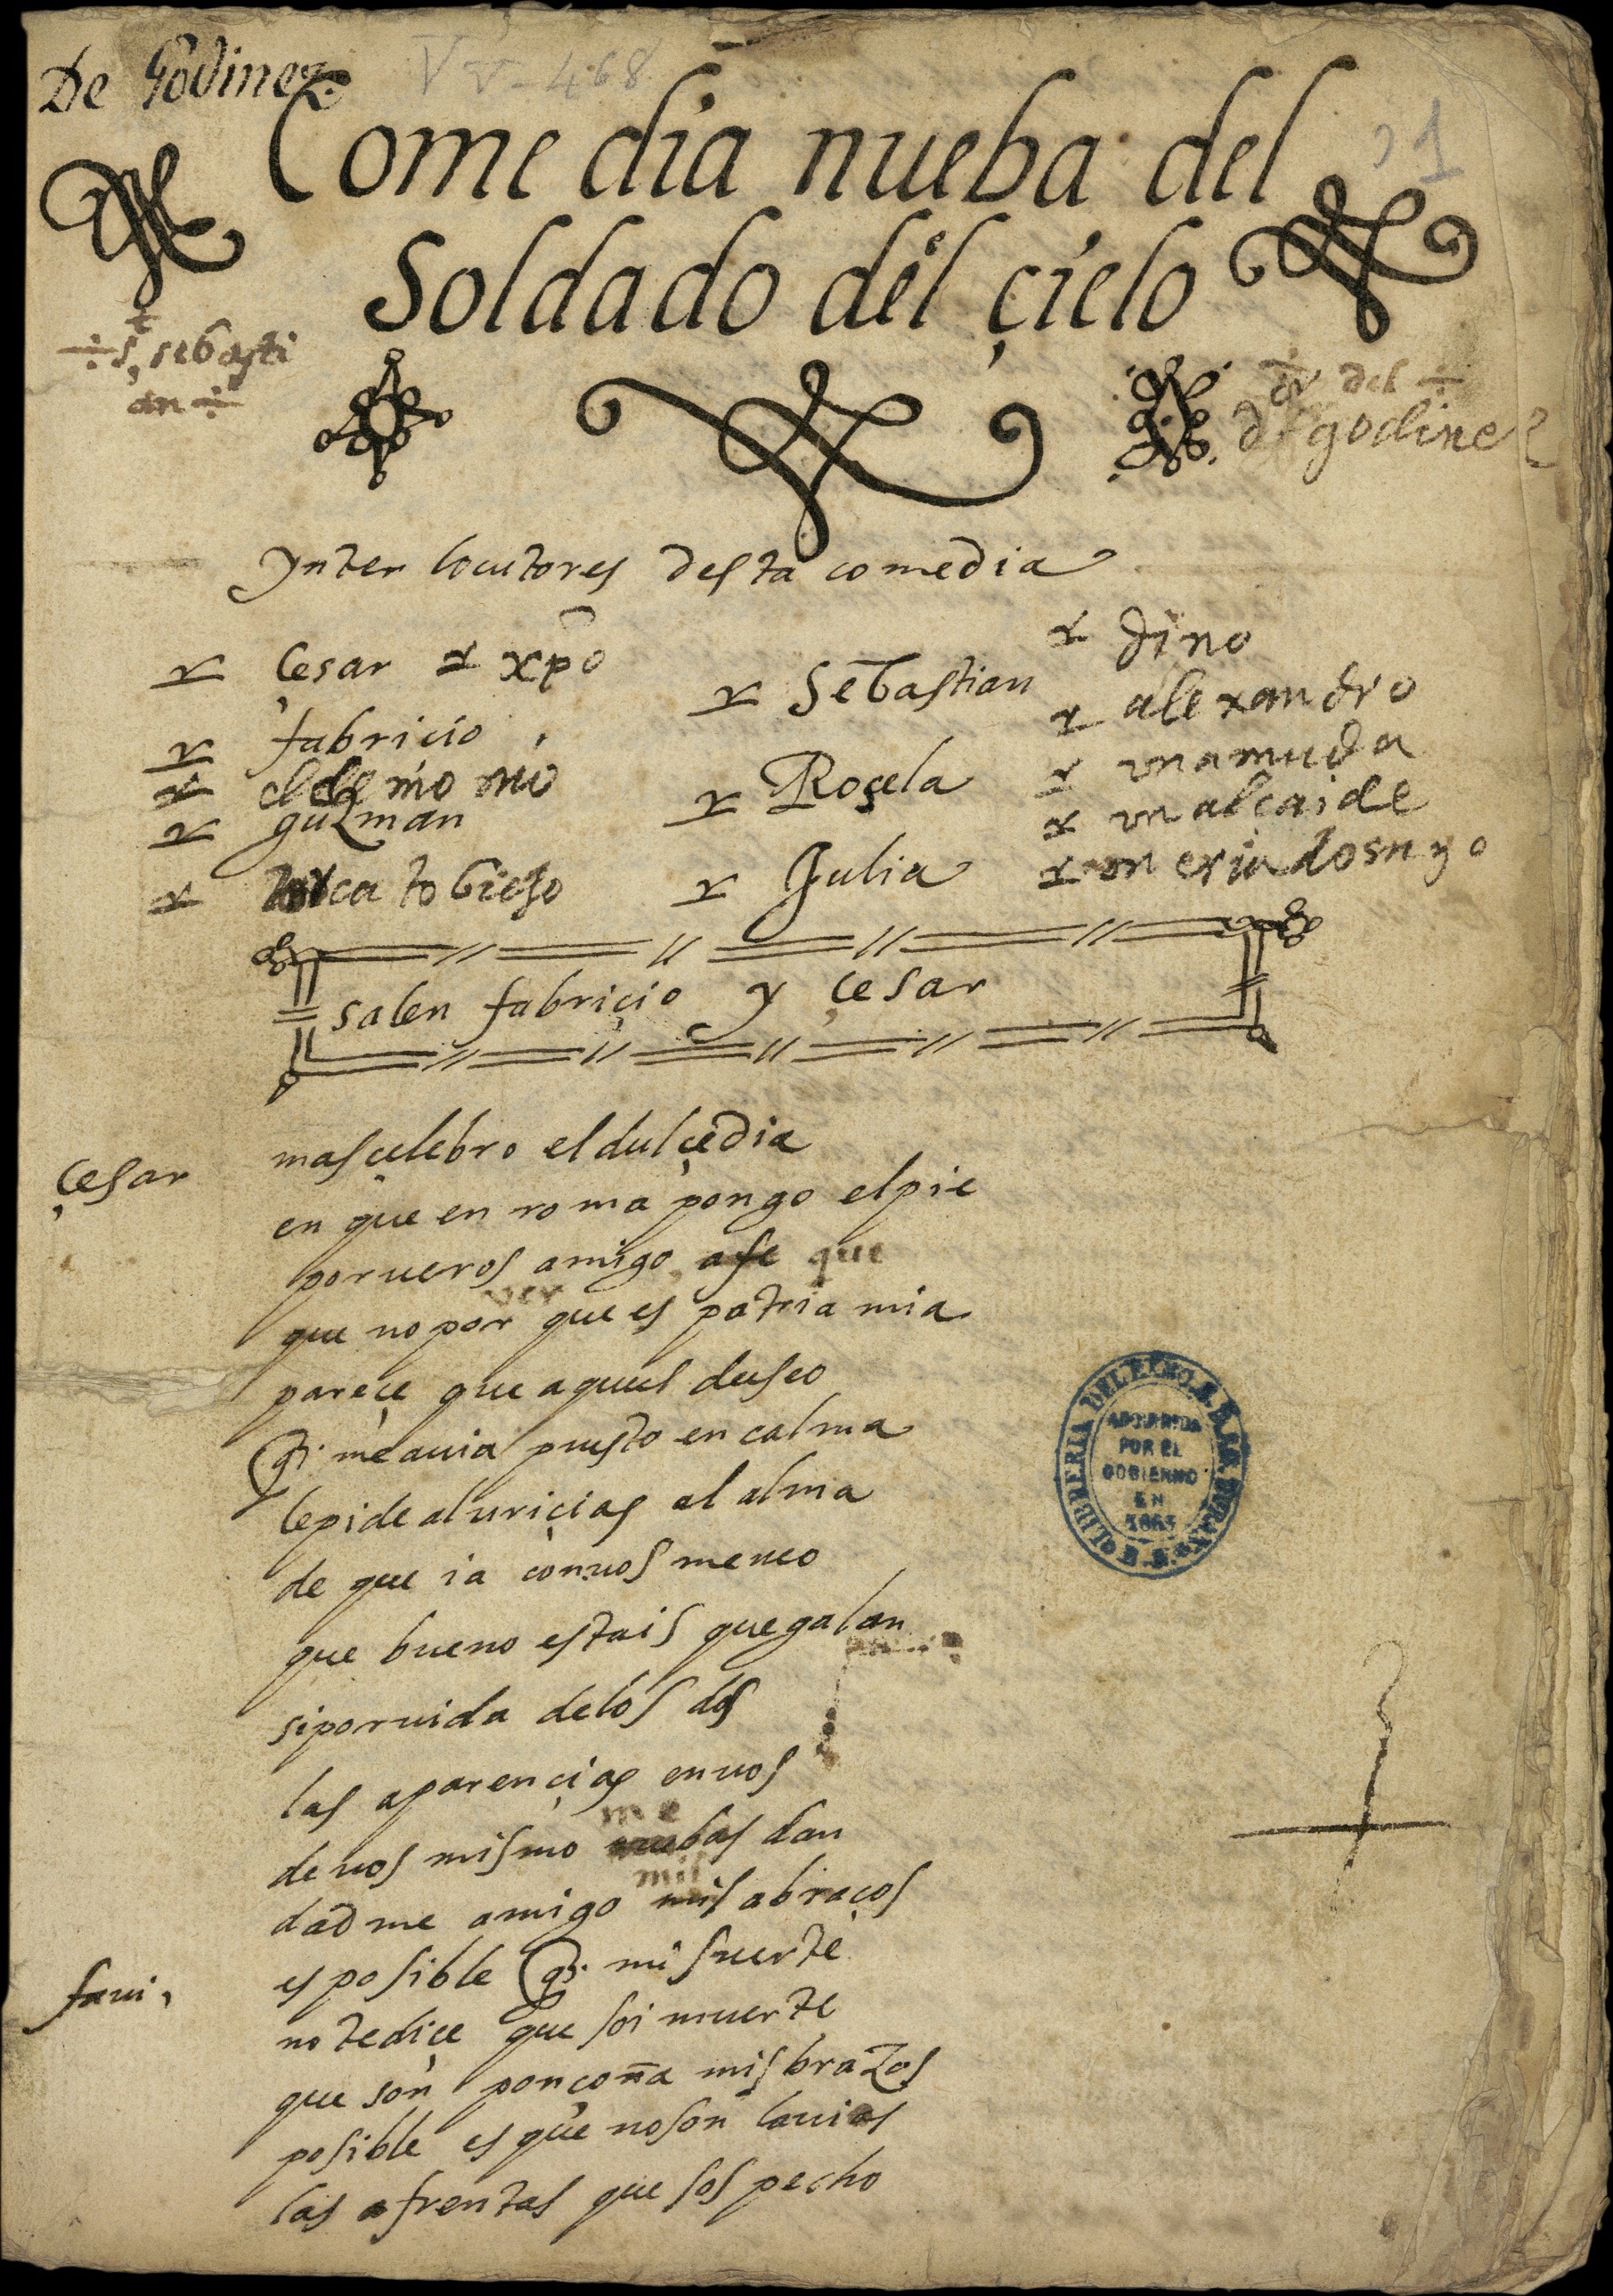 De Godinez
Vv-468
1
Comedia nueba del
Soldado del çielo
s. sebasti
an
del
godinez
Ynterlocutores desta comedia
Cesar xpo
fabricio
el demonio
guzman
cato biejo
Sebastian
Roçela
Julia
dino
alexandro
una muda
un alcaide
un criado suyo
salen fabriçio y çesar
çesar
mas çelebro el dulçe dia
en que en roma pongo el pie
por ueros amigo afe que
ver
que no por que es patria mia
pareçe que aquel deseo
q̃ me auia puesto en calma
le pide aluriçias al alma
de que ia con uos me ueo
que bueno estais que galan
si por uida de los dos
las aparençias en uos
me
de uos mismo nuebas dan
mil
dadme amigo mis abraços
faui,
es posible q̃ mi suerte
no te diçe que soi muerte
que son ponçoña mis brazos
posible es que no son lauios
las afrentas que sospecho
LIBRERIA DEL EXMO. S. D. AG. DURAN
ADQUIRIDA
POR EL
GOBIERNO
EN
1863